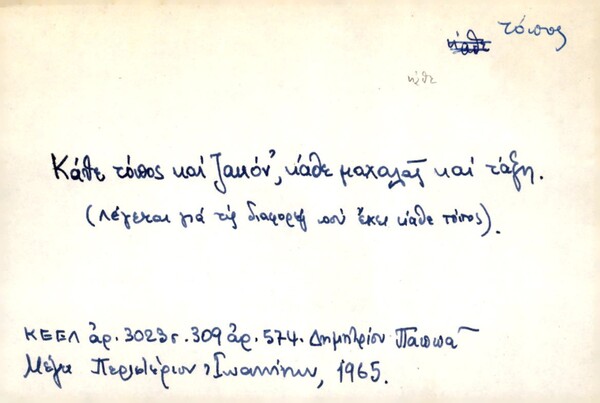 κάθε τόπος
κάθε
Κάθε τόπος καί ζακόν', κάθε μαχαλᾶς καί τάξη.
(Λέγεται γιά τίς διαφορές πού ἔχει κάθε τόπος).
ΚΕΕΛ ἀρ. 3023 σ. 309 ἀρ. 574. Δημητρίου Παππᾶ
Μέγα Περιστέριον Ἰωαννίνων, 1965.